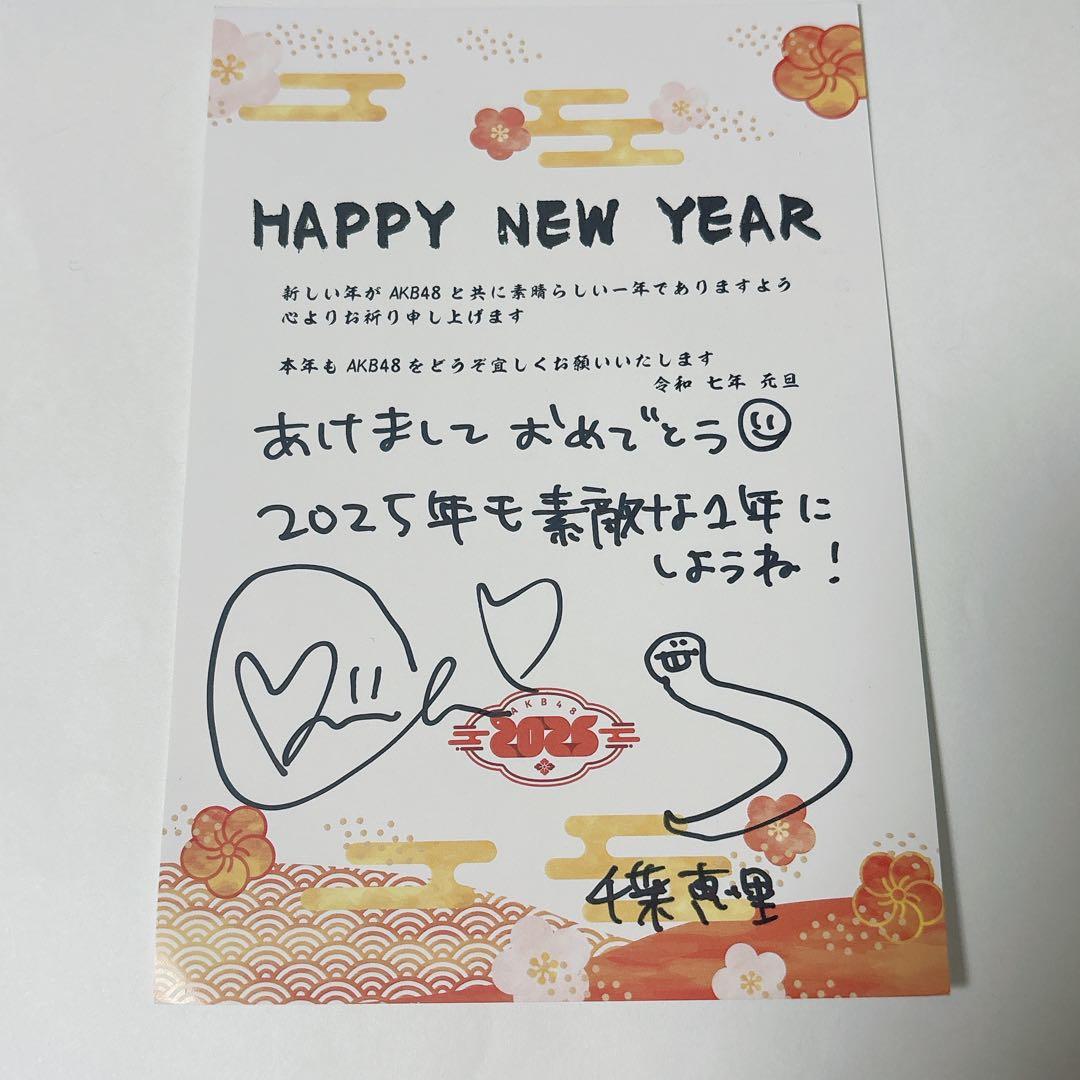 HAPPY NEW YEAR
新しい年が AKB48 と共に素晴らしい一年でありますよう
心よりお祈り申し上げます
本年も AKB48 をどうぞ宜しくお願いいたします
令和 七年 元旦
あけまして おめでとう
2025年も素敵な1年に
しようね!
AKB48
2025
千葉恵里